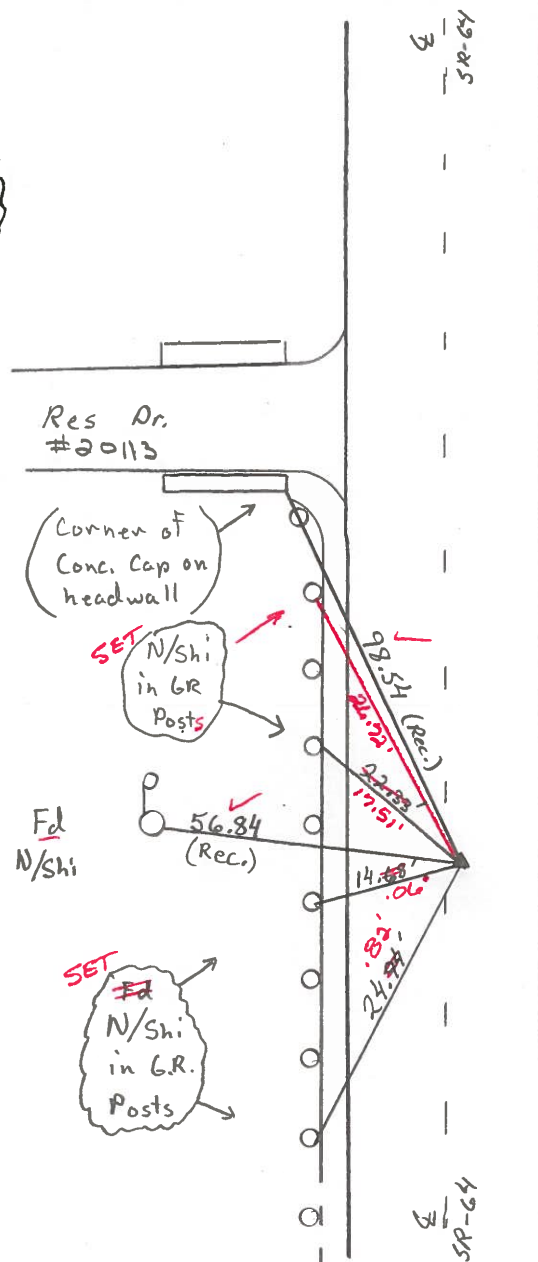 ℄
SR-64
Res Dr.
#20113
(Corner of
Conc. Cap on
headwall)
SET
N/Shi
in GR
Posts
98.54 (Rec.)
26.72'
22.33'
17.51'
56.84
(Rec.)
Fd
N/Shi
14.68'
.06'
.82'
24.94'
SET
Fd
N/Shi
in G.R.
Posts
℄
SR-64